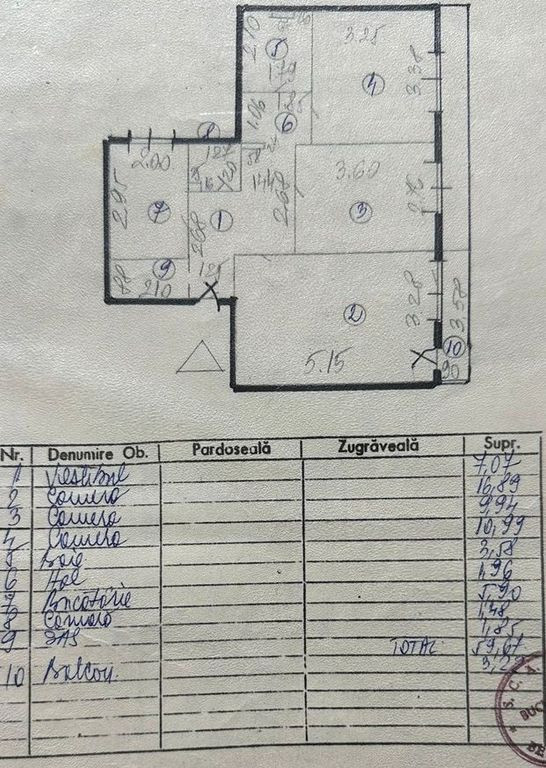 2.10
5
1.79
3.25
4
3.38
1.06
1.85
6
8
2.00
2.95
7
3.60
3
2.68
1
2.68
88
9
210
2
3.28
3.58
5.15
10
90
Nr. Denumire Ob. Pardoseală Zugrăveală Supr.
1 Vestibul 7,07
2 Camera 16,89
3 Camera 9,94
4 Camera 10,99
5 Baie 3,58
6 Hol 1,96
7 Bucătărie 5,90
8 Camară 1,48
9 SAS 1,85
TOTAL 59,67
10 Balcon
S. C. A.